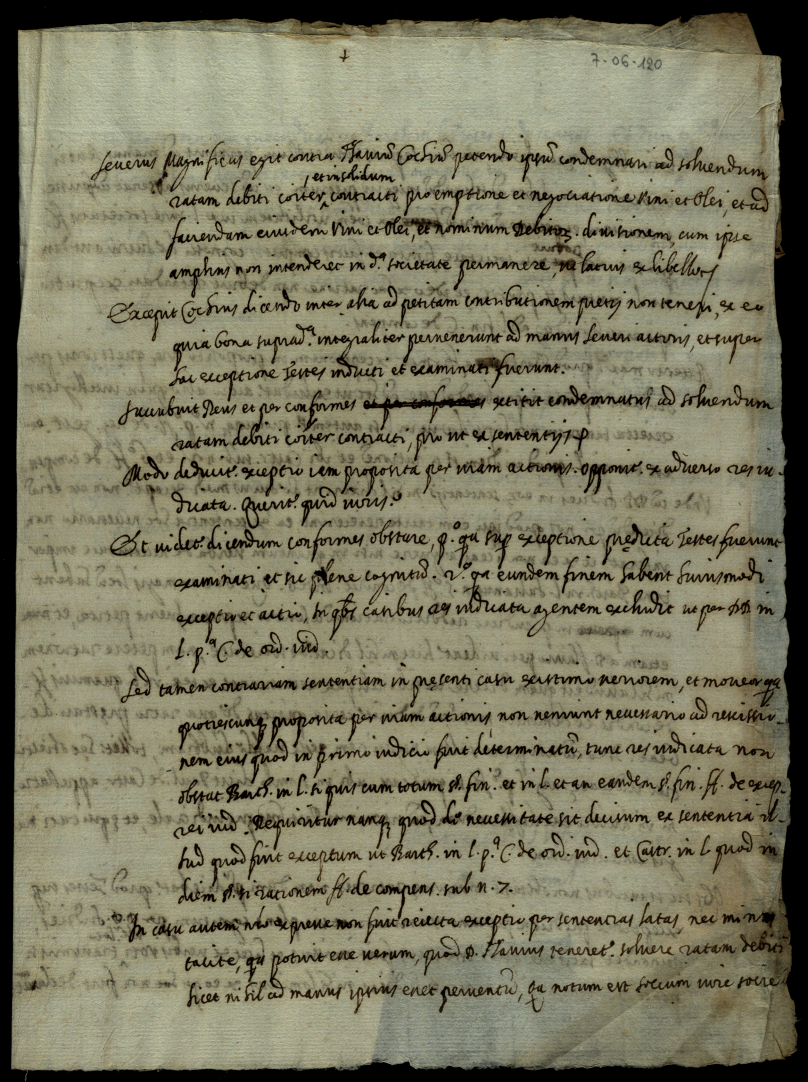 +
7-06-120
Severus Magnificus egit contra Flaviũ Cochiũ petendo ipsũ condemnari ad solvendum
, et insolidum
ratam debiti coiter contracti pro emptione et negociatione Vini et Olei, et ad
faciendam eiusdem Vini et Olei, et nominum Debitoꝝ. divisionem, cum ipse
amplius non intenderet in d.ª societate permanere, latius ex libello
Excepit Cochius dicendo inter alia ad petitam contributionem pretij non teneri, ex eo
quia bona suprad.ª integraliter pervenerunt ad manus Severi actoris, et super
hac exceptione Testes inducti et examinati fuerunt.
Succubuit Reus et per conformes extitit condemnatus ad solvendum
ratam debiti coiter contracti, pro ut ex sententijs
Modo deducit.r exceptio iam proposita per viam actionis. Opponit.r ex adverso res iu-
dicata. Querit.r quid iuris.
Et videt.r dicendum conformes obstare, p.º qa sup exceptione prędicta Testes fuerunt
examinati et sic plene cognitũ. 2.º qa eundem finem habent huiusmodi
exceptio et actio, in qbs casibus res iudicata agentem excludit ut per DD in
l. p.ª C. de ord. iud.
Sed tamen contrariam sententiam in pręsenti casu existimo veriorem, et moveor qa
quotiescunq proposita per viam actionis non veniunt necessario ad rescissio-
nem eius quod in primo iudicio fuit determinatũ, tunc res iudicata non
obstat Barth. in l. si quis cum totum §. fin. et in l. et an eandem §. fin. ff. de excep.
rei iud. Requiritur namq quod de necessitate sit decisum ex sententia il-
lud quod fuit exceptum ut Barth. in l. p.ª C. de ord. iud. et Castr. in l. quod in
diem §. si rationem ff. de compens. sub n. 7.
In casu autem nro expresse non fuit reiecta exceptio per sententias latas, nec minus
tacite, qa potuit esse verum, quod D. Flavius teneret.r solvere ratam debiti
licet nihil ad manus ipsius esset perventũ, qa notum est socium iure socie